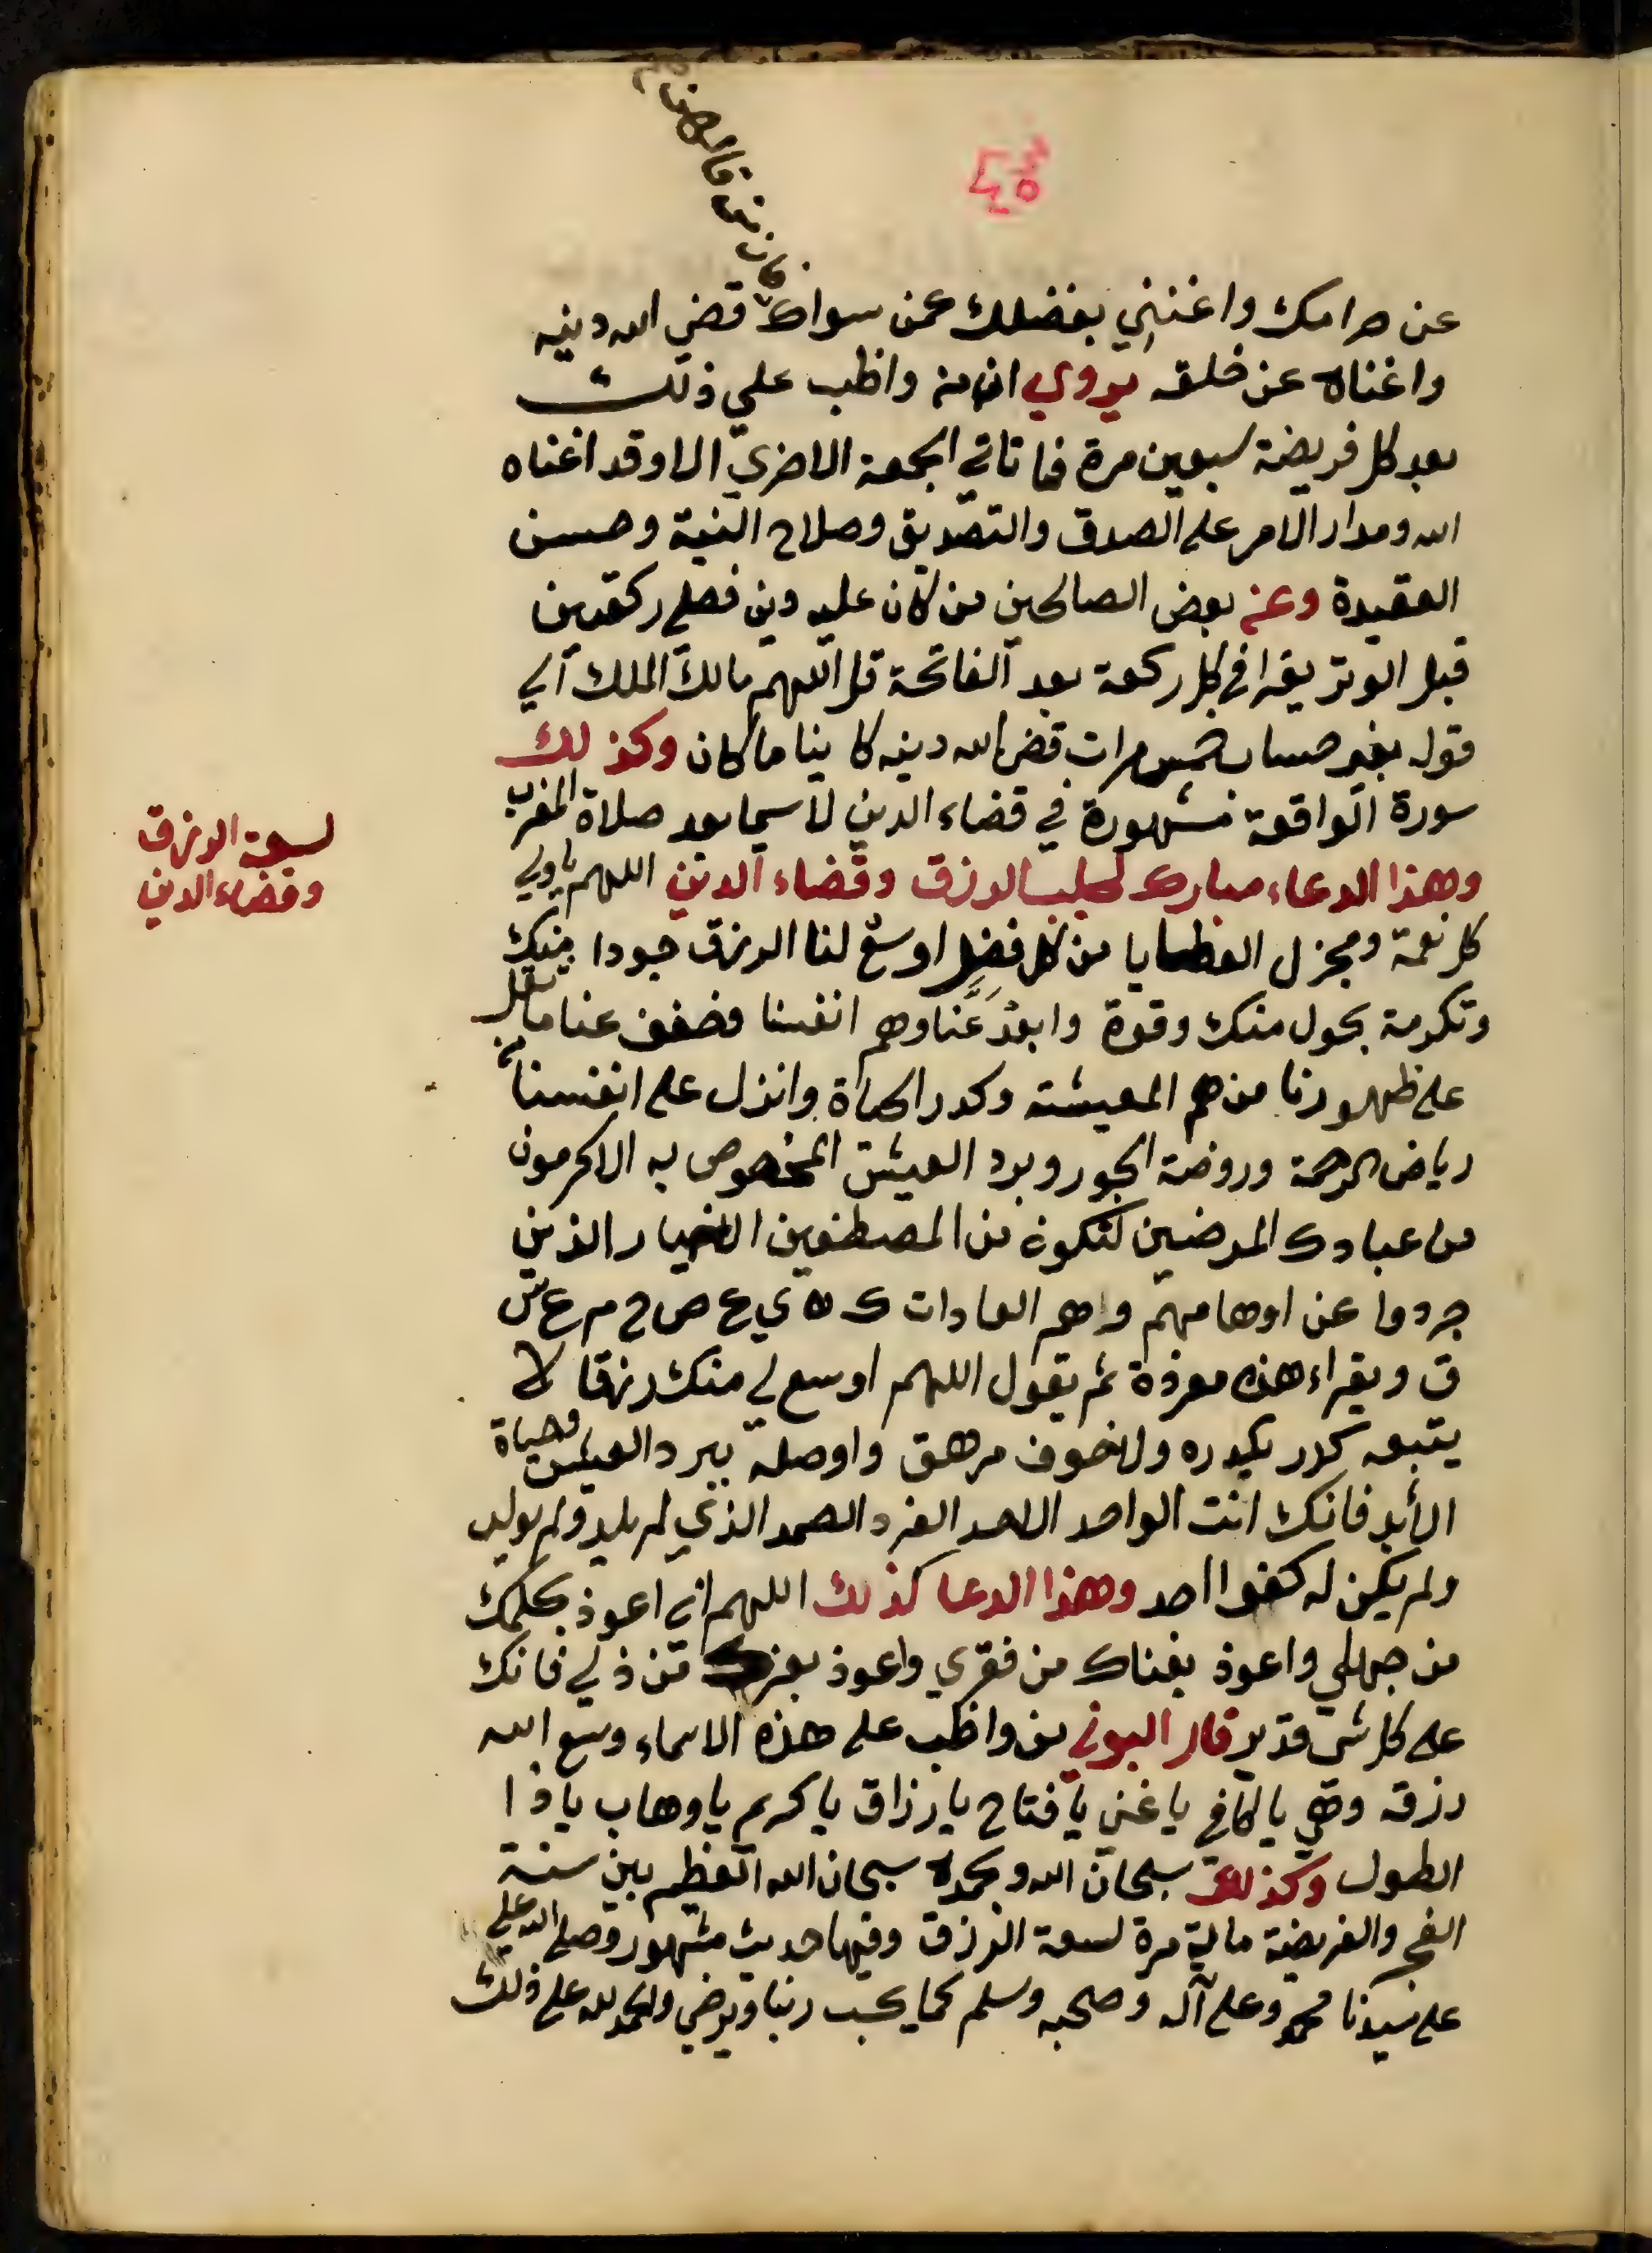 عن حرامك واغنني بفضلك عمن سواك قضي الله دينه
واغناه عن خلقه يروي ان من واظب علي ذلك
بعد كل فريضة سبعين مرة فما تاتي الجمعة الاخري الا وقد اغناه
الله ومدار الامر على الصدق والتصديق وصلاح النية وحسن
العقيدة وعن بعض الصالحين من كان عليه دين فصلى ركعتين
قبل الوتر يقرا في كل ركعة بعد الفاتحة قل اللهم مالك الملك الي
قوله بغير حساب خمس مرات قضى الله دينه كاينا ما كان وكذلك
سورة الواقعة مشهورة في قضاء الدين لا سيما بعد صلاة المغرب
لسعة الرزق
وقضاء الدين
وهذا الدعاء مبارك لجلب الرزق وقضاء الدين اللهم يا ولي
كل نعمة ومجزل العطايا من كل فضل اوسع لنا الرزق جودا منك
وتكرمة بحول منك وقوة وابعد عنا وهم انفسنا وخفف عنا ما ثقل
على ظهورنا من هم المعيشة وكدر الحياة وانزل على انفسنا من
رياض الرحمة وروضة الجود وبرد العيش المخصوص به الاكرمون
من عبادك المرضيين لنكون من المصطفين الاخيار الذين
جردوا عن اوهامهم واهم العادات ك ه ي ع ص ح م ع س
ق ويقراء هذه معوذة ثم يقول اللهم اوسع لي منك رزقا لا
يتبعه كدر يكدره ولا خوف مرهق واوصله ببرد العيش وحياة
الأبد فانك انت الواحد الاحد الفرد الصمد الذي لم يلد ولم يولد
ولم يكن له كفوا احد وهذا الدعا كذلك اللهم اني اعوذ بحلمك
من جهلي واعوذ بغناك من فقري واعوذ بعزك من ذلي فانك
على كل شي قدير قال البوني من واظب على هذه الاسماء وسع الله
رزقه وهي يا كافي يا غني يا فتاح يا رزاق يا كريم يا وهاب يا ذا
الطول وكذلك سبحان الله وبحمده سبحان الله العظيم بين سنة
الفجر والفريضة ماية مرة لسعة الرزق وفيها حديث مشهور وصلى الله على
على سيدنا محمد وعلى آله وصحبه وسلم كما يحب ربنا ويرضي والحمد لله على ذلك